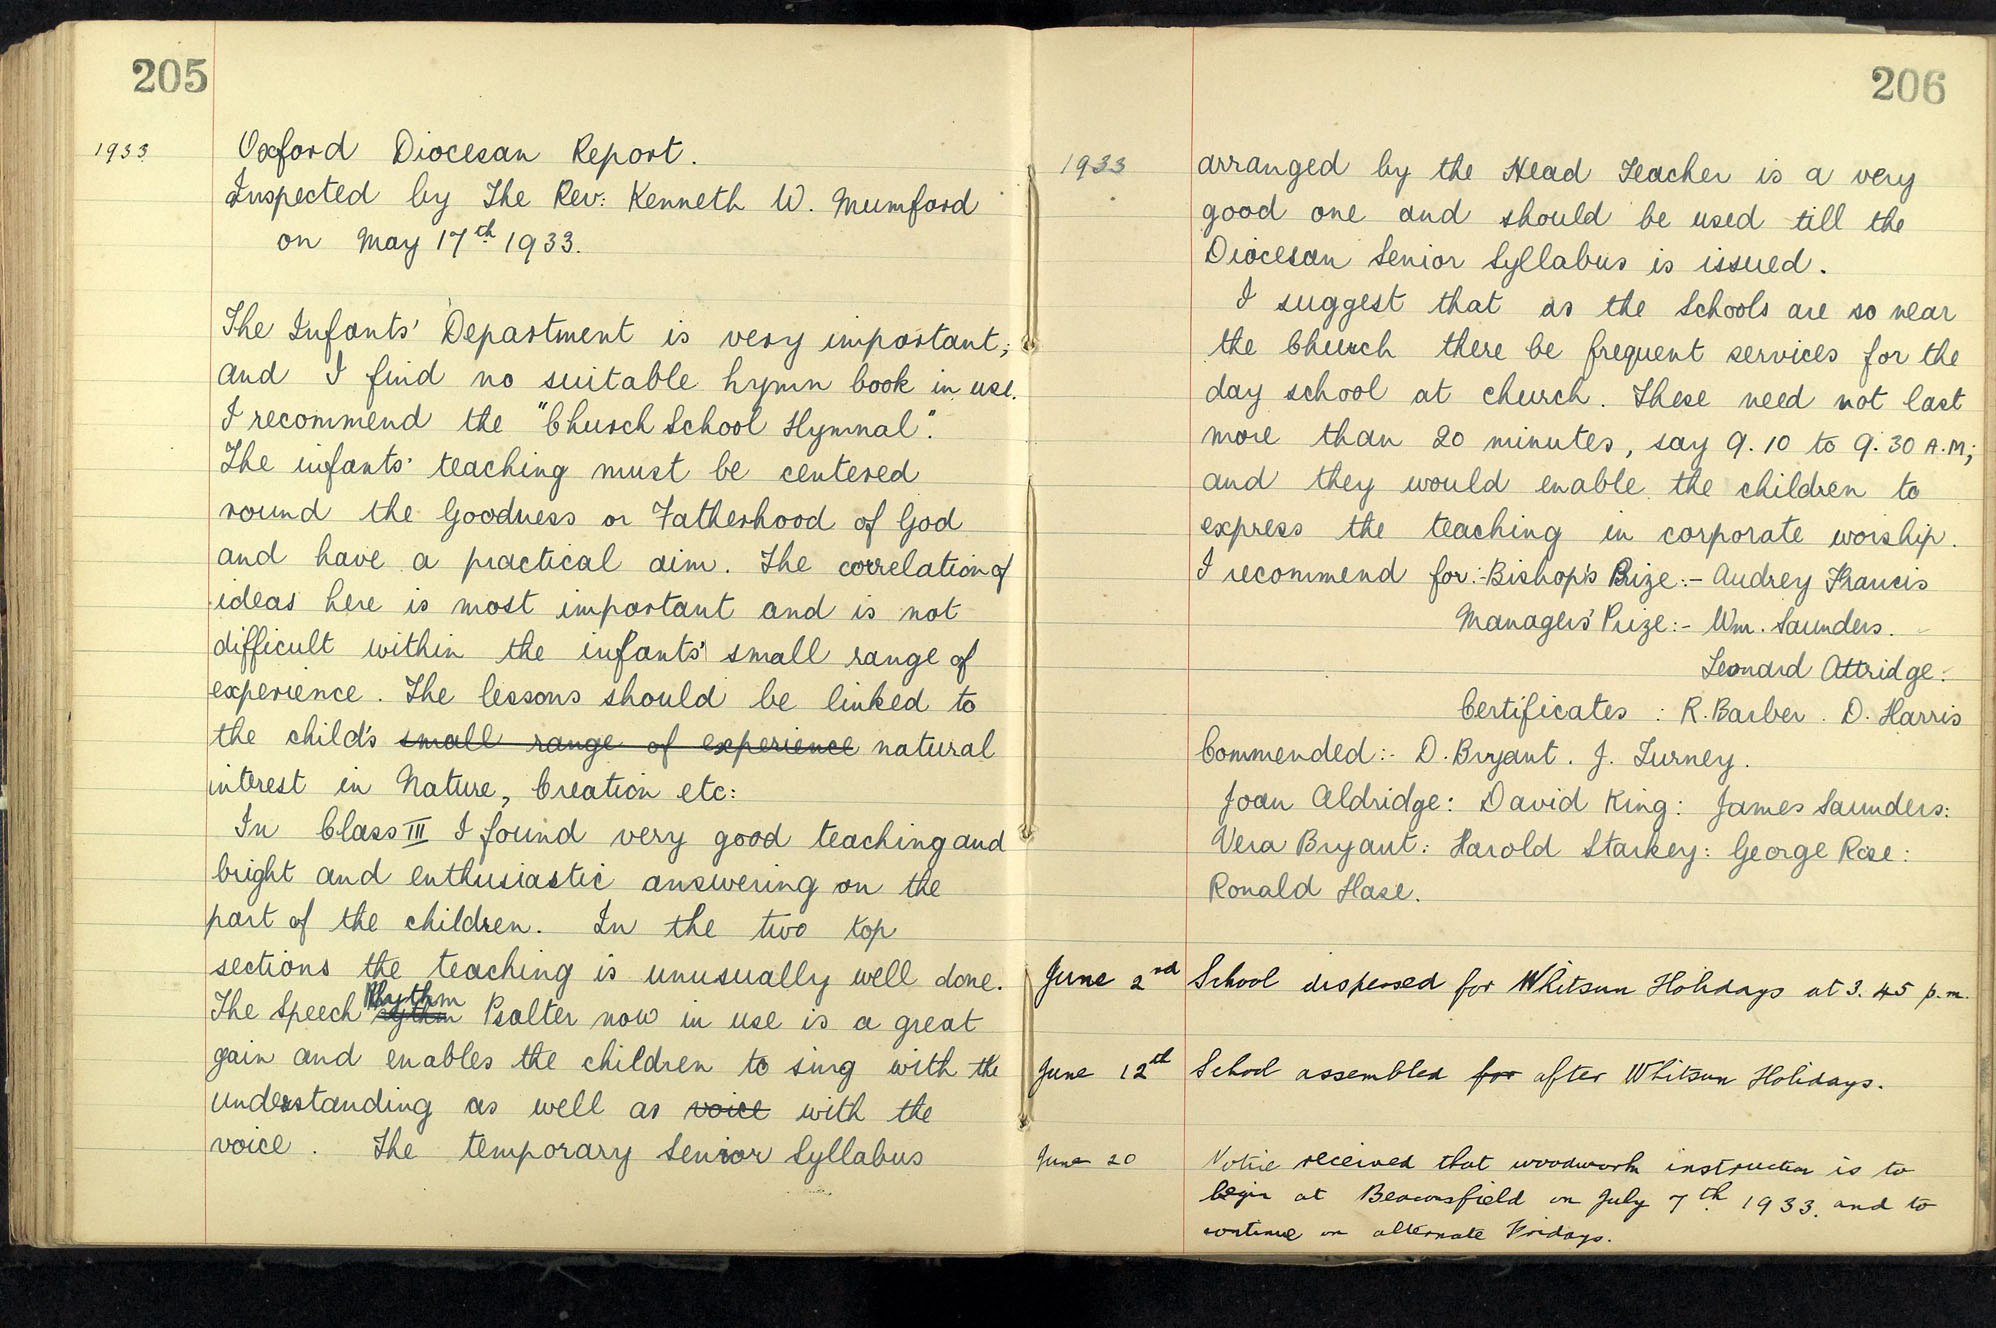 205
1933
Oxford Diocesan Report.
Inspected by The Rev: Kenneth W. Mumford
on May 17th 1933.
The Infants' Department is very important;
and I find no suitable hymn book in use.
I recommend the "Church School Hymnal".
The infants' teaching must be centered
round the Goodness or Fatherhood of God
and have a practical aim. The correlation of
ideas here is most important and is not
difficult within the infants' small range of
experience. The lessons should be linked to
the child's small range of experience natural
interest in Nature, Creation etc:
In Class III I found very good teaching and
bright and enthusiastic answering on the
part of the children. In the two top
sections the teaching is unusually well done.
Rhythm
The Speech rythm Psalter now in use is a great
gain and enables the children to sing with the
understanding as well as voice with the
voice. The temporary Senior Syllabus
206
1933
arranged by the Head Teacher is a very
good one and should be used till the
Diocesan Senior Syllabus is issued.
I suggest that as the Schools are so near
the Church there be frequent services for the
day school at church. These need not last
more than 20 minutes, say 9.10 to 9.30 A.M;
and they would enable the children to
express the teaching in corporate worship.
I recommend for:- Bishop's Prize:- Audrey Francis
Managers' Prize:- Wm. Saunders.
Leonard Attridge:
Certificates : R. Barber. D. Harris
Commended:- D. Bryant. J. Turney.
Joan Aldridge: David King: James Saunders:
Vera Bryant: Harold Starkey: George Rose:
Ronald Hase.
June 2nd School dispersed for Whitsun Holidays at 3.45 p.m.
June 12th School assembled for after Whitsun Holidays.
June 20 Notice received that woodwork instruction is to
begin at Beaconsfield on July 7th 1933. and to
continue on alternate Fridays.